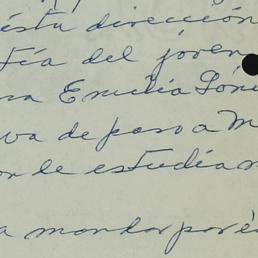 ésta dirección
tía del joven
Emilia
va de paso a M
de estudia
a mandar por é